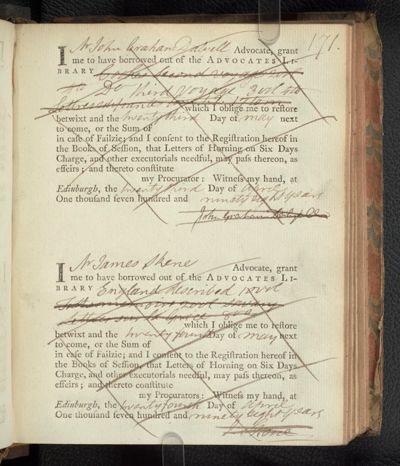 171.
I Mr John Graham Dalyell Advocate, grant
me to have borrowed out of the ADVOCATES LI-
BRARY Cooks Second Voyage
Do third voyage 3 vol 4to
which I oblige me to restore
betwixt and the twenty third Day of May next
to come, or the Sum of
in case of Failzie; and I consent to the Registration hereof in
the Books of Session, that Letters of Horning on Six Days
Charge, and other executorials needful, may pass thereon, as
effeirs; and thereto constitute
my Procurator: Witness my hand, at
Edinburgh, the twenty third Day of April
One thousand seven hundred and ninety eight years
John Graham
I Mr James Skene Advocate, grant
me to have borrowed out of the ADVOCATES LI-
BRARY England described
which I oblige me to restore
betwixt and the twenty fourth Day of May next
to come, or the Sum of
in case of Failzie; and I consent to the Registration hereof in
the Books of Session, that Letters of Horning on Six Days
Charge, and other executorials needful, may pass thereon, as
effeirs; and thereto constitute
my Procurators: Witness my hand, at
Edinburgh, the twenty fourth Day of April
One thousand seven hundred and ninety eight years
Skene